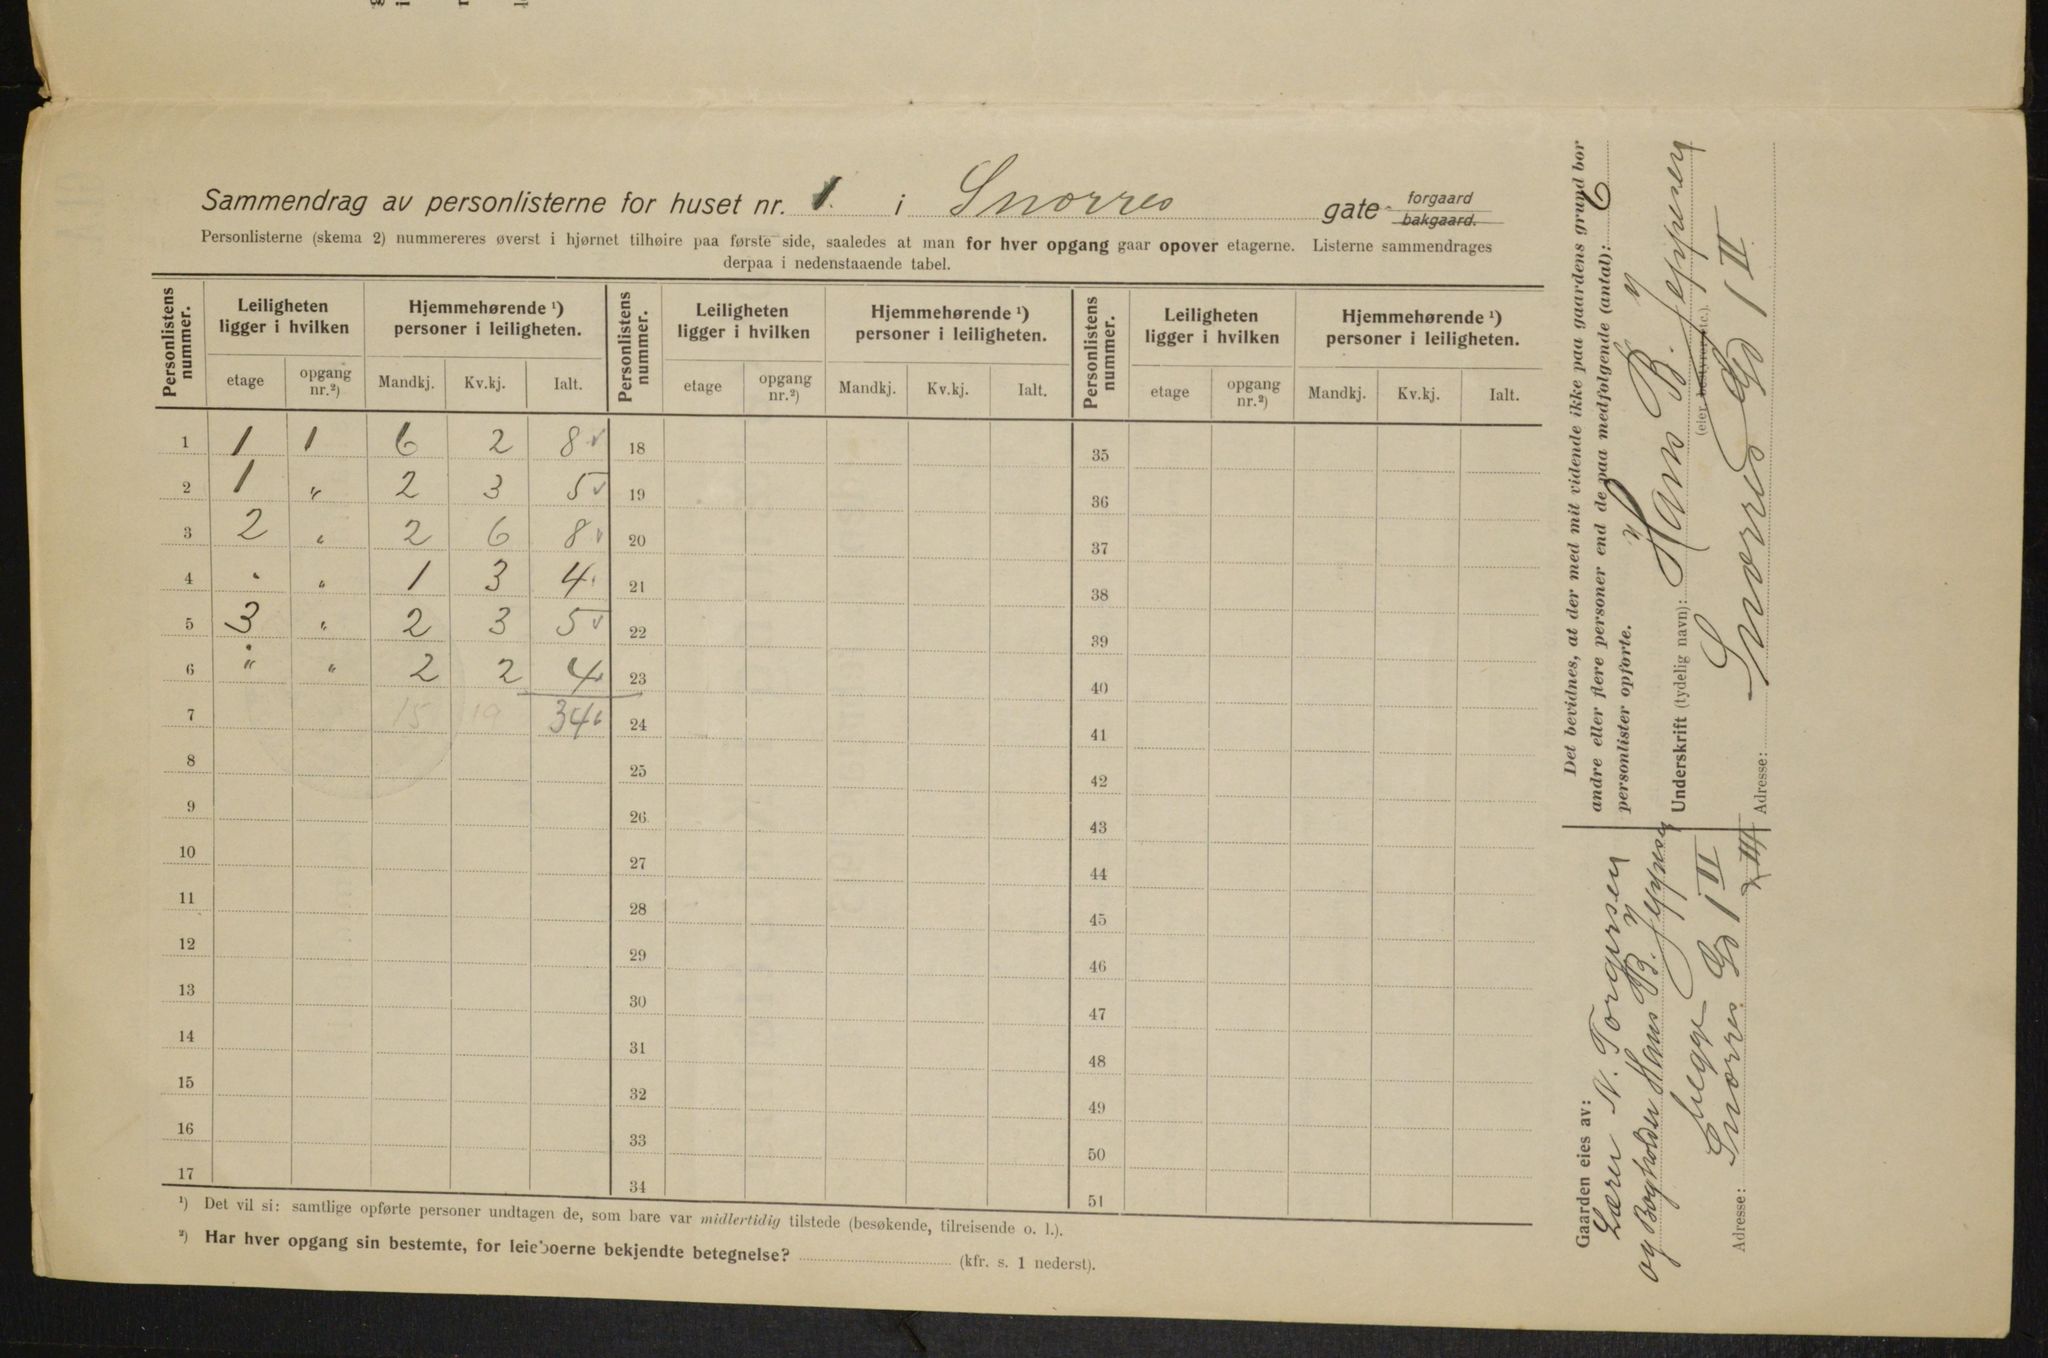 Sammendrag av personlisterne for huset nr. 1. i Snorres gate - forgaard bakgaard.
Personlisterne (skema 2) nummereres øverst i hjørnet tilhøire paa første side, saaledes at man for hver opgang gaar opover etagerne. Listerne sammendrages
derpaa i nedenstaaende tabel.
Personlistens nummer. Leiligheten ligger i hvilken Hjemmehørende ¹) personer i leiligheten. Personlistens nummer. Leiligheten ligger i hvilken Hjemmehørende ¹) personer i leiligheten. Personlistens nummer. Leiligheten ligger i hvilken Hjemmehørende ¹) personer i leiligheten.
etage opgang nr.²) Mandkj. Kv.kj. Ialt. etage opgang nr.²) Mandkj. Kv.kj. Ialt. etage opgang nr.²) Mandkj. Kv.kj. Ialt.
1 1 1 6 2 8 18 35
2 1 " 2 3 5 19 36
3 2 " 2 6 8 20 37
4 " " 1 3 4 21 38
5 3 " 2 3 5 22 39
6 " " 2 2 4 23 40
7 15 19 34 24 41
8 25 42
9 26 43
10 27 44
11 28 45
12 29 46
13 30 47
14 31 48
15 32 49
16 33 50
17 34 51
¹) Det vil si: samtlige opførte personer undtagen de, som bare var midlertidig tilstede (besøkende, tilreisende o. l.).
²) Har hver opgang sin bestemte, for leieboerne bekjendte betegnelse? (kfr. s. 1 nederst).
Gaarden eies av:
Lærer N. Torgersen
og Bogholder Hans B. Jeppesen
begge
Snorres Gd 1 II
Adresse:
Det bevidnes, at der med mit vidende ikke paa gaardens grund bor
andre eller flere personer end de paa medfølgende (antal): 6
personlister opførte.
Underskrift (tydelig navn): Hans B. Jeppesen
(eier bestyrer etc.).
Snorres Gd 1 II
Adresse: